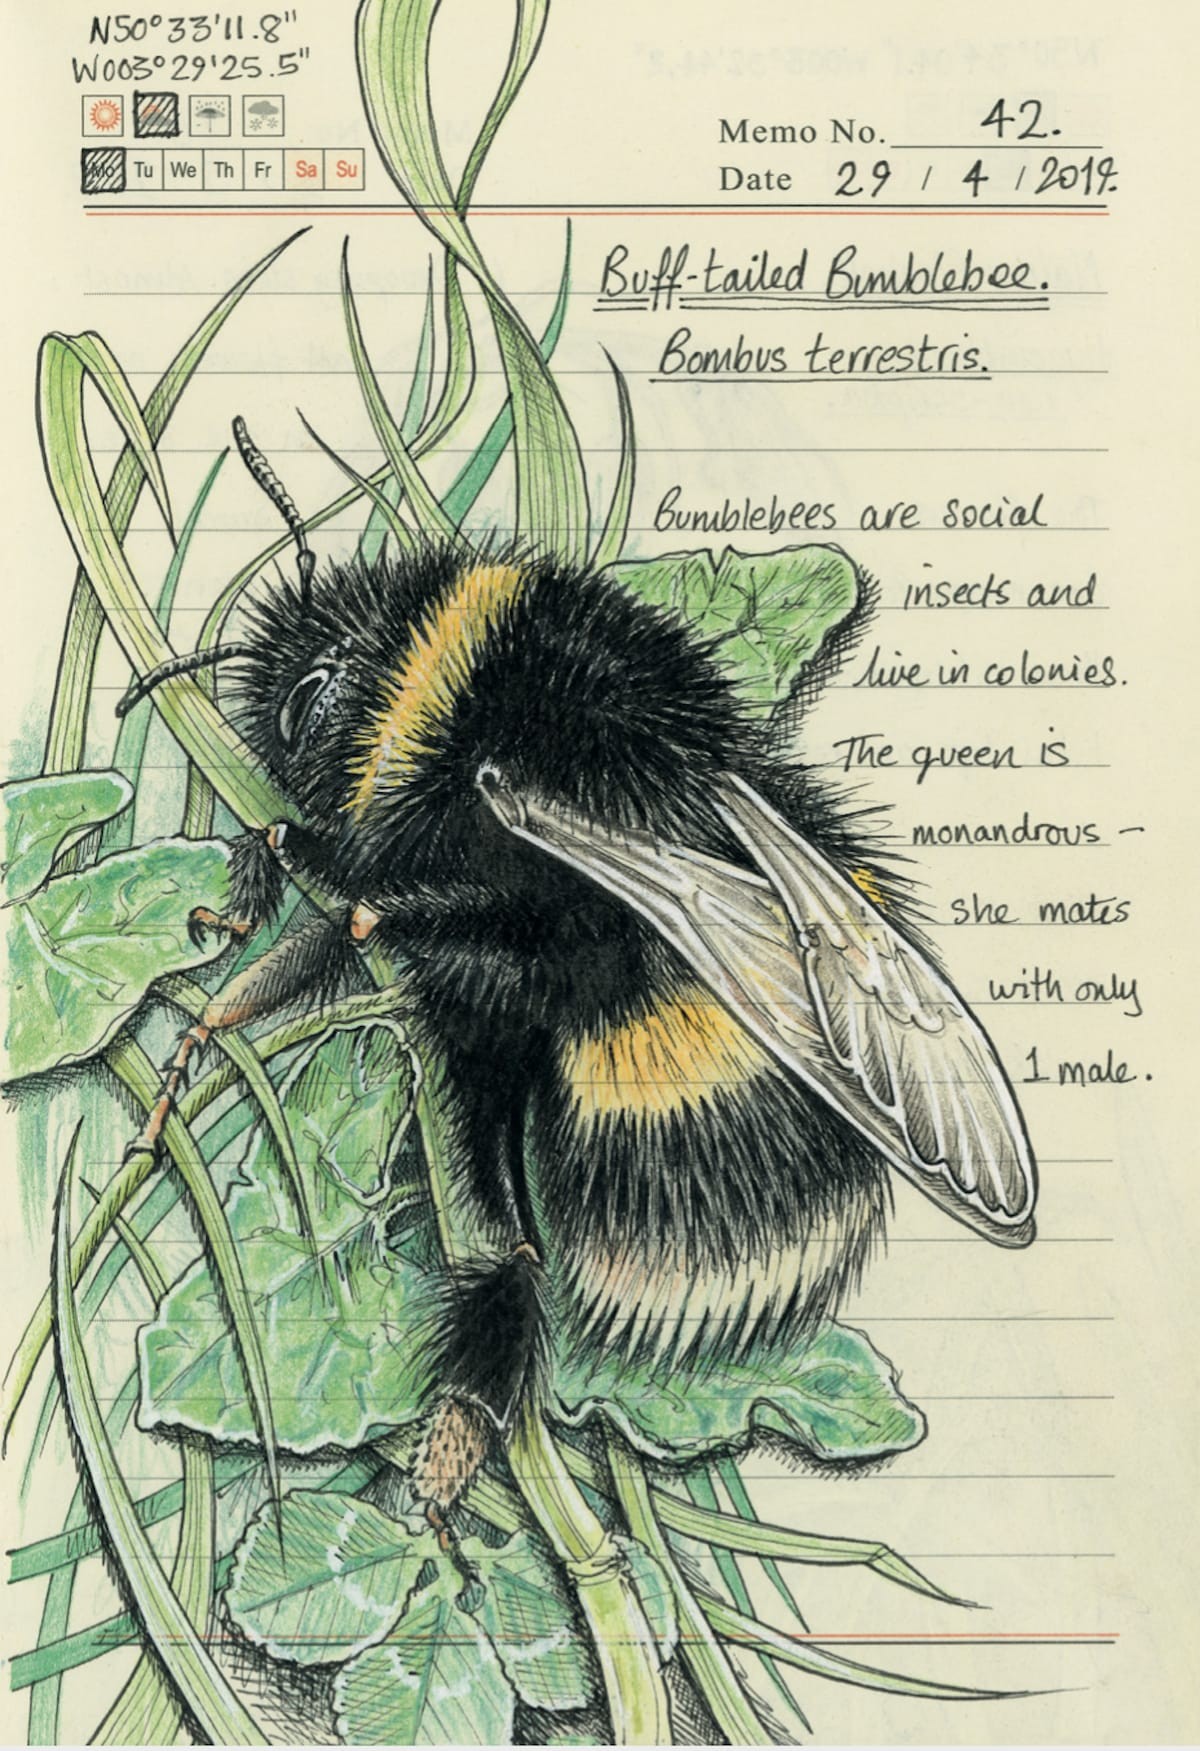 N50°33'11.8"
W003°29'25.5"
Mo Tu We Th Fr Sa Su
Memo No. 42.
Date 29 / 4 / 2019.
Buff-tailed Bumblebee.
Bombus terrestris.
Bumblebees are social
insects and
live in colonies.
The queen is
monandrous -
she mates
with only
1 male.